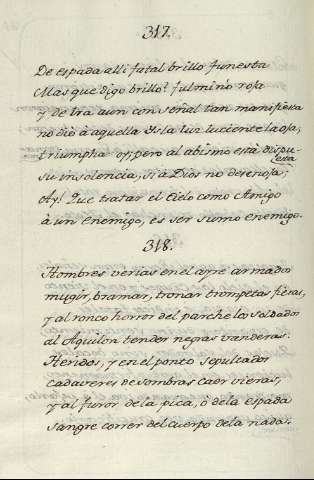 317.
De espada alli fatal brillo funesta
Mas que digo brillo? fulminò roja
y de Ira aun con señal tan manifiesta
no dió à aquella Isla luz luciente la oja,
triumpha oy, pero al abismo està dispu-
esta
su insolencia, si à Dios no
Ay! Que tratar el Cielo como Amigo
à un Enemigo, es ser sumo enemigo.
318.
Hombres verias en el ayre armados
mugir, bramar, tronar trompetas fieras,
y al ronco horror del parche los soldados
al Aquilon tender negras vanderas.
Heridos, y en el ponto sepultados
cadaveres de sombras caer vieras,
y al furor de la pica, ò de la espada
sangre correr del cuerpo de la nada.